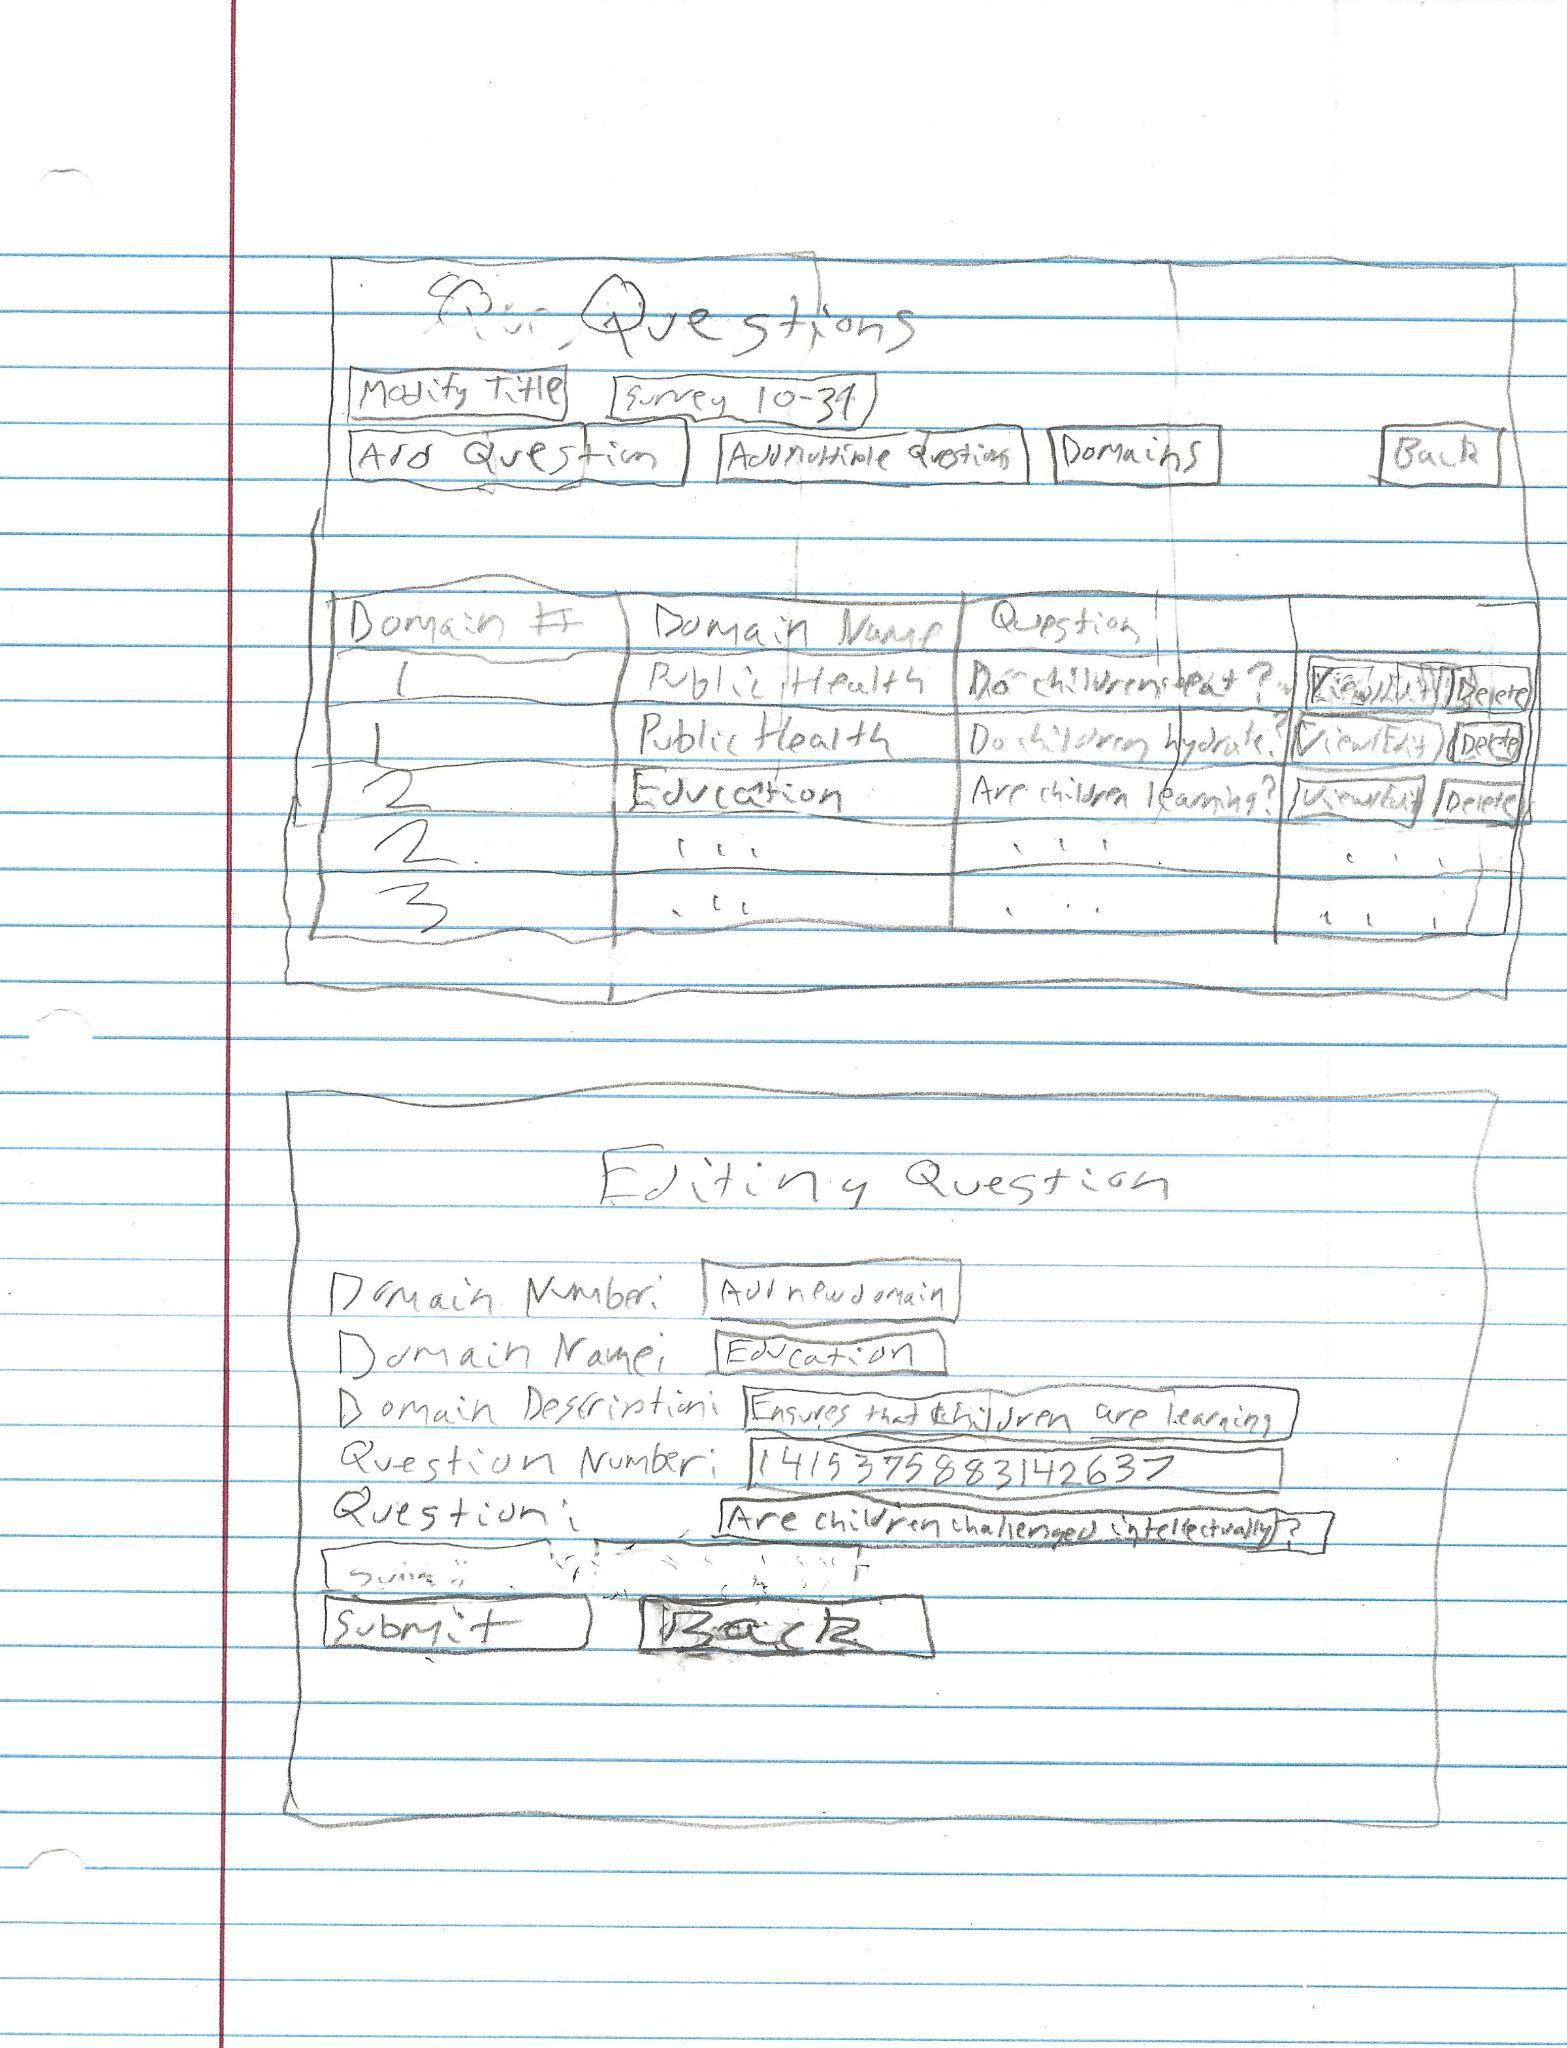 Questions
Modify Title Survey 10-34
Add Question Add Multiple Questions Domains Back
Domain # Domain Name Question
1 Public Health Do children eat? View/Edit Delete
1 Public Health Do children hydrate? View/Edit Delete
2 Education Are children learning? View/Edit Delete
2 ... ... ...
3 ... ... ...
Editing Question
Domain Number: Add new domain
Domain Name: Education
Domain Description: Ensures that children are learning
Question Number: 1415375883142637
Question: Are children challenged intellectually?
Submit Back